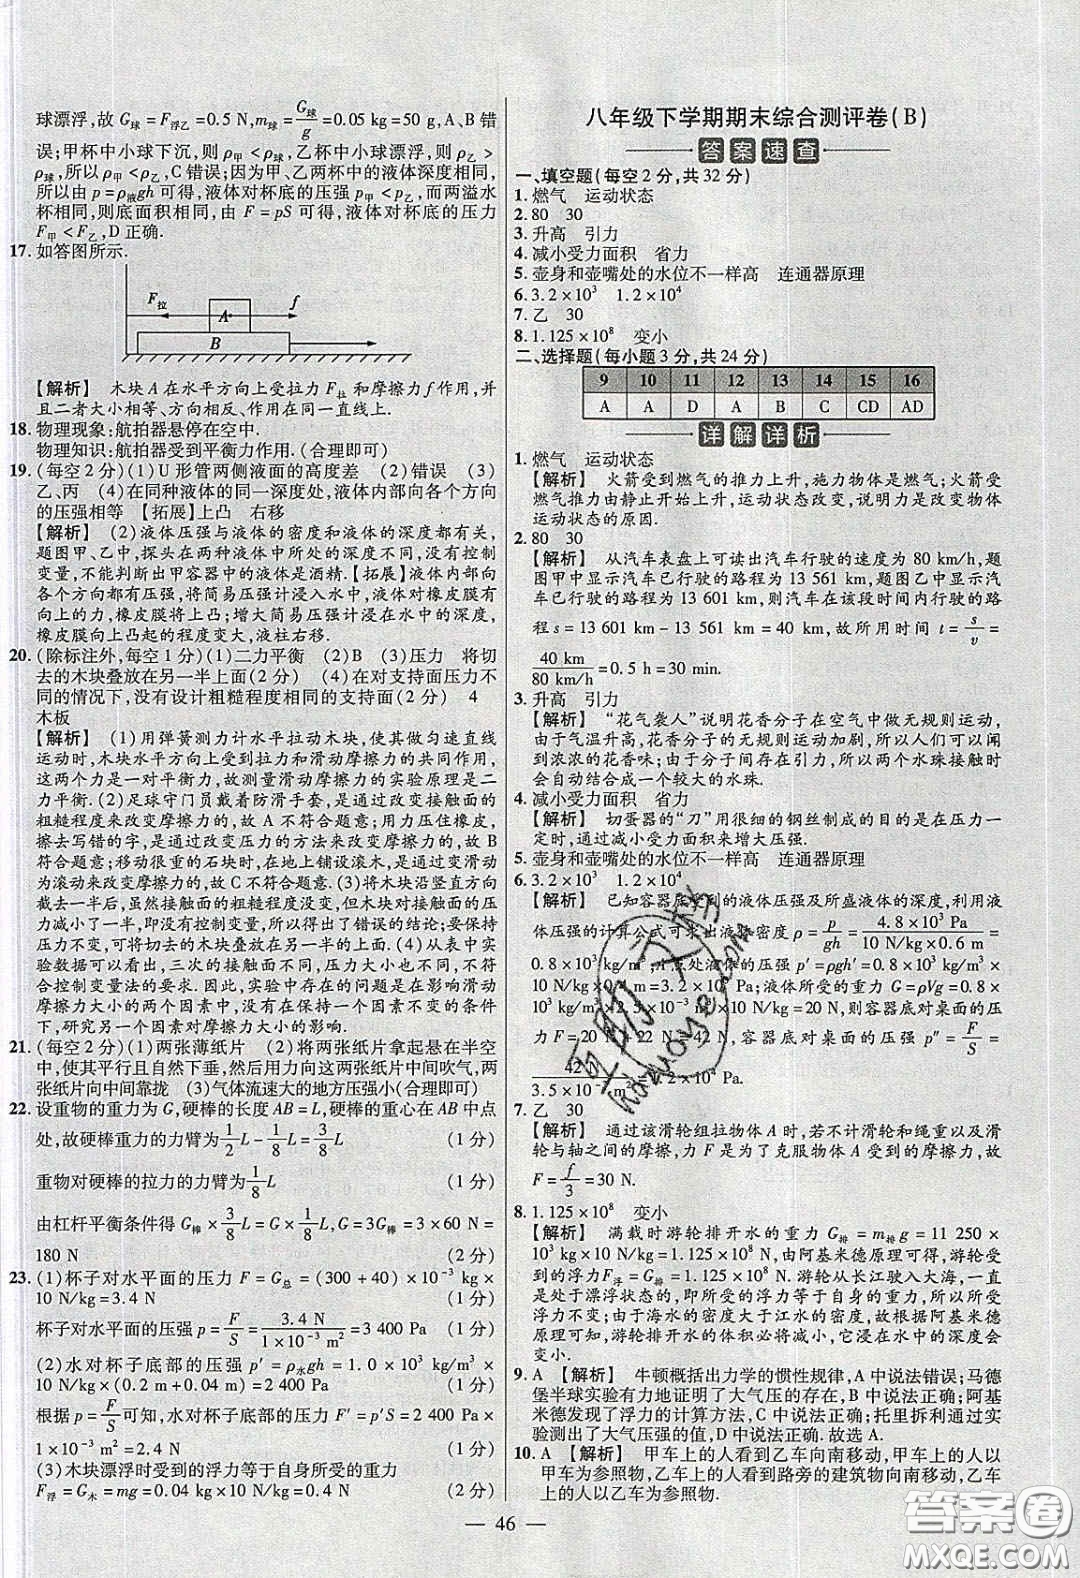 球漂浮,故 G球 = F浮乙 = 0.5 N,m球 = G球/g = 0.05 kg = 50 g,A、B 错
误;甲杯中小球下沉,则 ρ甲 < ρ球,乙杯中小球漂浮,则 ρ乙 >
ρ球,所以 ρ甲 < ρ乙,C 错误;因为甲、乙两杯中的液体深度相同,
所以由 p = ρ液gh 可得,液体对杯底的压强 p甲 < p乙,而两溢水
杯相同,则底面积相同,由 F = pS 可得,液体对杯底的压力
F甲 < F乙,D 正确.
17. 如答图所示.
F拉 A f
B
【解析】 木块 A 在水平方向上受拉力 F拉 和摩擦力 f 作用,并
且二者大小相等、方向相反、作用在同一直线上.
18. 物理现象:航拍器悬停在空中.
物理知识:航拍器受到平衡力作用.(合理即可)
19. (每空 2 分)(1)U 形管两侧液面的高度差 (2)错误 (3)
乙、丙 (4)在同种液体的同一深度处,液体内部向各个方向
的压强相等 【拓展】上凸 右移
【解析】 (2)液体压强与液体的密度和液体的深度都有关,
题图甲、乙中,探头在两种液体中所处的深度不同,没有控制
变量,不能判断出甲容器中的液体是酒精.【拓展】液体内向
各个方向都有压强,将简易压强计浸入水中,液体对橡皮膜有
向上的力,橡皮膜将上凸;增大简易压强计浸在水中的深度,
橡皮膜向上凸起的程度变大,液柱右移.
20. (除标注外,每空 1 分)(1)二力平衡 (2)B (3)压力 将切
去的木块叠放在另一半上面(2 分) (4)在对支持面压力不
同的情况下,没有设计粗糙程度相同的支持面(2 分) 4
木板
【解析】 (1)用弹簧测力计水平拉动木块,使其做匀速直线
运动时,木块水平方向上受到拉力和滑动摩擦力的共同作用,
这两个力是一对平衡力,故测量滑动摩擦力的实验原理是二
力平衡.(2)足球守门员戴着防滑手套,是通过改变接触面的
粗糙程度来改变摩擦力的,故 A 不符合题意;用力压住橡皮,
擦去写错的字,是通过改变压力的方法来改变摩擦力的,故 B
符合题意;移动很重的石块时,在地上铺设滚木,是通过变滑动
为滚动来改变摩擦力的,故 C 不符合题意.(3)将木块沿竖直方向
截去一半后,虽然接触面的粗糙程度没变,但木块对接触面的压
力减小了一半,即没有控制变量,所以得出了错误的结论;要保持
压力不变,可将切去的木块叠放在另一半的上面.(4)从表中实
验数据可以看出,三次的接触面不同,压力大小也不同,不符
合控制变量法的要求.因此,实验中存在的问题是在影响滑动
摩擦力大小的两个因素中,没有在保持一个不变的条件
下,研究另一个因素对摩擦力大小的影响.
21. (每空 2 分)(1)两张薄纸片 (2)将两张纸片拿起悬在半空
中,使其平行且自然下垂,然后用力向这两张纸片中间吹气,两
张纸片向中间靠拢 (3)气体流速大的地方压强小(合理即可)
22. 设重物的重力为 G,硬棒的长度 AB = L,硬棒的重心在 AB 中点
处,故硬棒重力的力臂为 1/2 L - 1/8 L = 3/8 L (1 分)
重物对硬棒的拉力的力臂为 1/8 L (1 分)
由杠杆平衡条件得 G棒 × 3/8 L = G × 1/8 L,G = 3G棒 = 3 × 60 N =
180 N (2 分)
23. (1)杯子对水平面的压力 F = G总 = (300 + 40) × 10⁻³ kg ×
10 N/kg = 3.4 N (1 分)
杯子对水平面的压强 p = F/S = 3.4 N/(1 × 10⁻³ m²) = 3 400 Pa (1 分)
(2)水对杯子底部的压强 p′ = ρ水gh = 1.0 × 10³ kg/m³ ×
10 N/kg × (0.2 m + 0.04 m) = 2 400 Pa (1 分)
根据 p = F/S 可知,水对杯子底部的压力 F′ = p′S = 2 400 Pa ×
1 × 10⁻³ m² = 2.4 N (1 分)
(3)木块漂浮时受到的浮力等于自身所受的重力
F浮 = G木 = mg = 0.04 kg × 10 N/kg = 0.4 N (2 分)
八年级下学期期末综合测评卷(B)
答案速查
一、填空题(每空 2 分,共 32 分)
1. 燃气 运动状态
2. 80 30
3. 升高 引力
4. 减小受力面积 省力
5. 壶身和壶嘴处的水位不一样高 连通器原理
6. 3.2 × 10³ 1.2 × 10⁴
7. 乙 30
8. 1.125 × 10⁸ 变小
二、选择题(每小题 3 分,共 24 分)
9 10 11 12 13 14 15 16
A A D A B C CD AD
详解详析
1. 燃气 运动状态
【解析】 火箭受到燃气的推力上升,施力物体是燃气;火箭受
燃气推力由静止开始上升,运动状态改变,说明力是改变物体
运动状态的原因.
2. 80 30
【解析】 从汽车表盘上可读出汽车行驶的速度为 80 km/h,题
图甲中显示汽车已行驶的路程为 13 561 km,题图乙中显示汽
车已行驶的路程为 13 601 km,则汽车在该段时间内行驶的路
程 s = 13 601 km - 13 561 km = 40 km,故所用时间 t = s/v =
40 km/80 km/h = 0.5 h = 30 min.
3. 升高 引力
【解析】 “花气袭人”说明花香分子在空气中做无规则运动,
由于气温升高,花香分子的无规则运动加剧,所以人们可以闻
到浓浓的花香味;由于分子间存在引力,所以两个水珠接触时
会自动结合成一个较大的水珠.
4. 减小受力面积 省力
【解析】 切蛋器的“刀”用很细的钢丝制成的目的是在压力一
定时,通过减小受力面积来增大压强.
5. 壶身和壶嘴处的水位不一样高 连通器原理
6. 3.2 × 10³ 1.2 × 10⁴
【解析】 已知容器底受到的液体压强及所盛液体的深度,利用液
体压强的计算公式可求出液体密度 ρ = p/gh = 4.8 × 10³ Pa/(10 N/kg × 0.6 m) =
0.8 × 10³ kg/m³,A 处液体的压强 p′ = ρgh′ = 0.8 × 10³ kg/m³ ×
10 N/kg × 0.4 m = 3.2 × 10³ Pa;液体所受的重力 G = ρVg = 0.8 ×
10³ kg/m³ × 2.5 × 10⁻³ m³ × 10 N/kg = 20 N,则容器底对桌面的压
力 F = 20 N + 22 N = 42 N,容器底对桌面的压强 p″ = F/S =
42 N/(3.5 × 10⁻³ m²) = 1.2 × 10⁴ Pa.
7. 乙 30
【解析】 通过该滑轮组拉物体 A 时,若不计滑轮和绳重以及滑
轮与轴之间的摩擦,力 F 是为了克服物体 A 受到的摩擦力,故
F = f/3 = 30 N.
8. 1.125 × 10⁸ 变小
【解析】 满载时游轮排开水的重力 G排 = m排g = 11 250 ×
10³ kg × 10 N/kg = 1.125 × 10⁸ N;由阿基米德原理可得,游轮受
到的浮力F浮 = G排 = 1.125 × 10⁸ N;游轮从长江驶入大海,一直
是处于漂浮状态的,即所受的浮力等于自身的重力,所以所受
浮力不变;由于海水的密度大于江水的密度,故根据阿基米德
原理可知,游轮排开水的体积必将减小,它浸在水中的深度会
变小.
9. A 【解析】 牛顿概括出力学的惯性规律,A 中说法错误;马德
堡半球实验有力地证明了大气压的存在,B 中说法正确;阿基
米德发现了浮力的计算方法,C 中说法正确;托里拆利通过实
验测出了大气压强的值,D 中说法正确.故选 A.
10. A 【解析】 甲车上的人看到乙车向南移动,甲车上的人以
甲车为参照物,乙车上的人看到路旁的建筑物向南移动,乙车
上的人以乙车为参照物.
— 46 —
答案圈
MXQE.COM